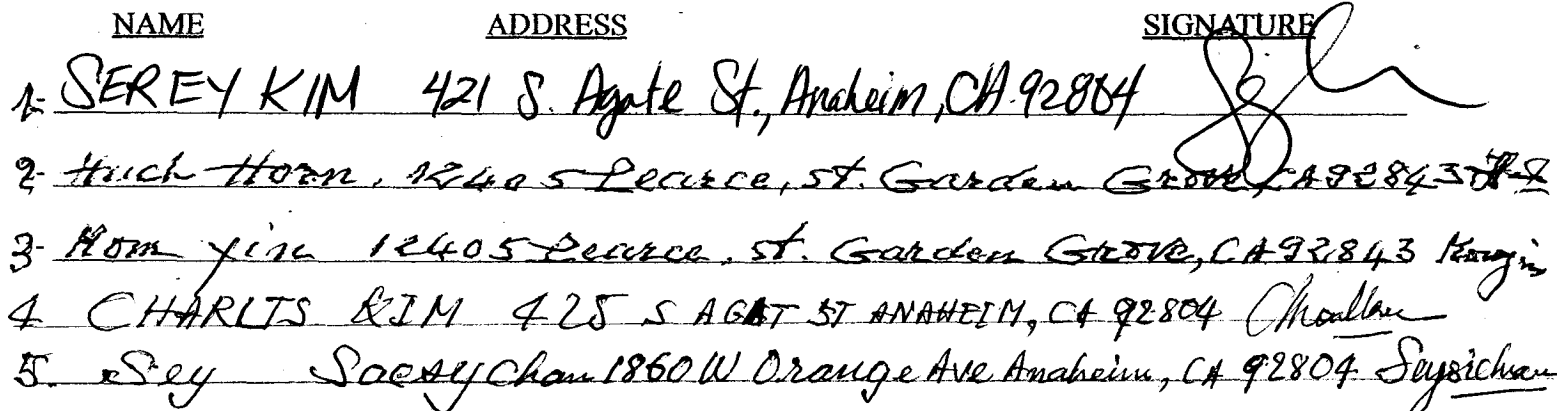 NAME ADDRESS SIGNATURE
1- SEREY KIM 421 S. Agate St., Anaheim, CA. 92804
2- Huch Horn, 12405 Pearce, st. Garden Grove, CA 92843
3- Kom yin 12405 Pearce, st. Garden Grove, CA 92843
4 CHARLTS KIM 425 S AGAT ST ANAHEIM, CA 92804
5. Sey Soesychan 1860 W Orange Ave Anaheim, CA 92804